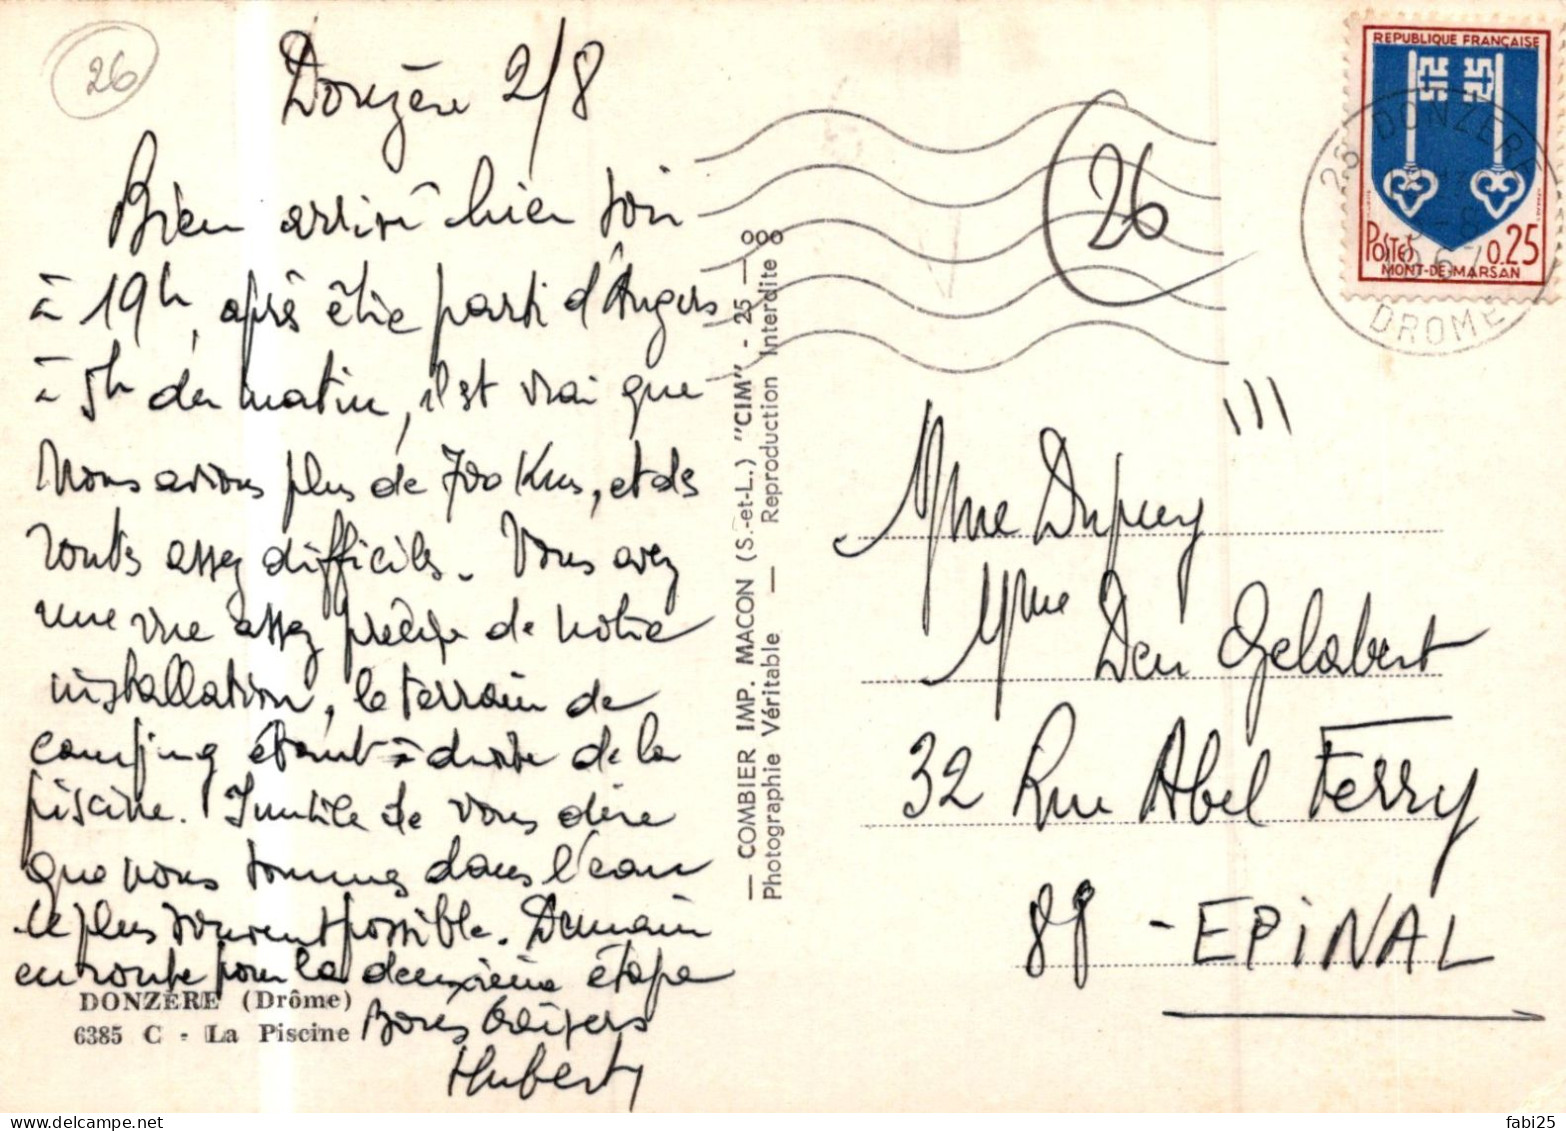 26
Donzère 2/8
Bien arrivé hier soir
à 19h, après être parti d'Angers
à 5h du matin, il est vrai que
nous avions plus de 700 Kms, et des
routes assez difficiles. Vous avez
une vue assez précise de notre
installation, le terrain de
camping étant à droite de la
piscine. Inutile de vous dire
que nous sommes dans l'eau
le plus souvent possible. Demain
en route pour la deuxième étape
Bons baisers
Hubert
DONZÈRE (Drôme)
6385 C - La Piscine
— COMBIER IMP. MACON (S.-et-L.) "CIM" - 25 — ooo
Photographie Véritable — Reproduction Interdite
26
REPUBLIQUE FRANÇAISE
POSTES 0.25
MONT-DE-MARSAN
26 DONZERE
DROME
Mme Dupuy
Mme Den Gelabert
32 Rue Abel Ferry
88 - EPINAL
fabi25